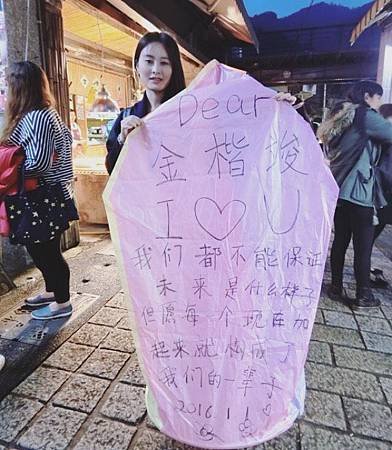 Dear
金楷峻
I ♡ U
我们都不能保证
未来是什么样子
但愿每个现在加
起来就构成了
我们的一辈子
2016 1 1